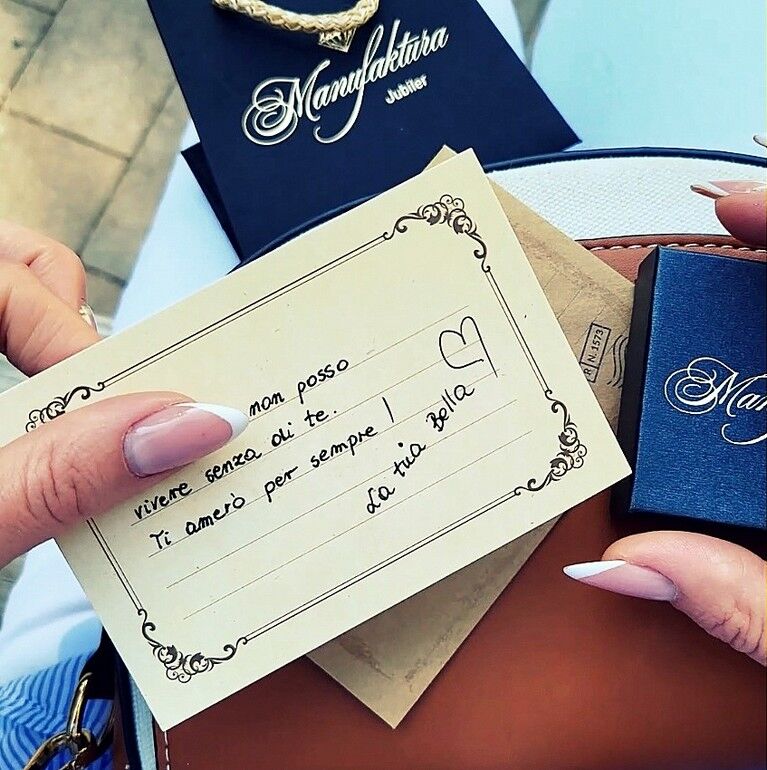 Manufaktura
Jubiler
R N. 1573
non posso
vivere senza di te.
Ti amerò per sempre!
La tua Bella